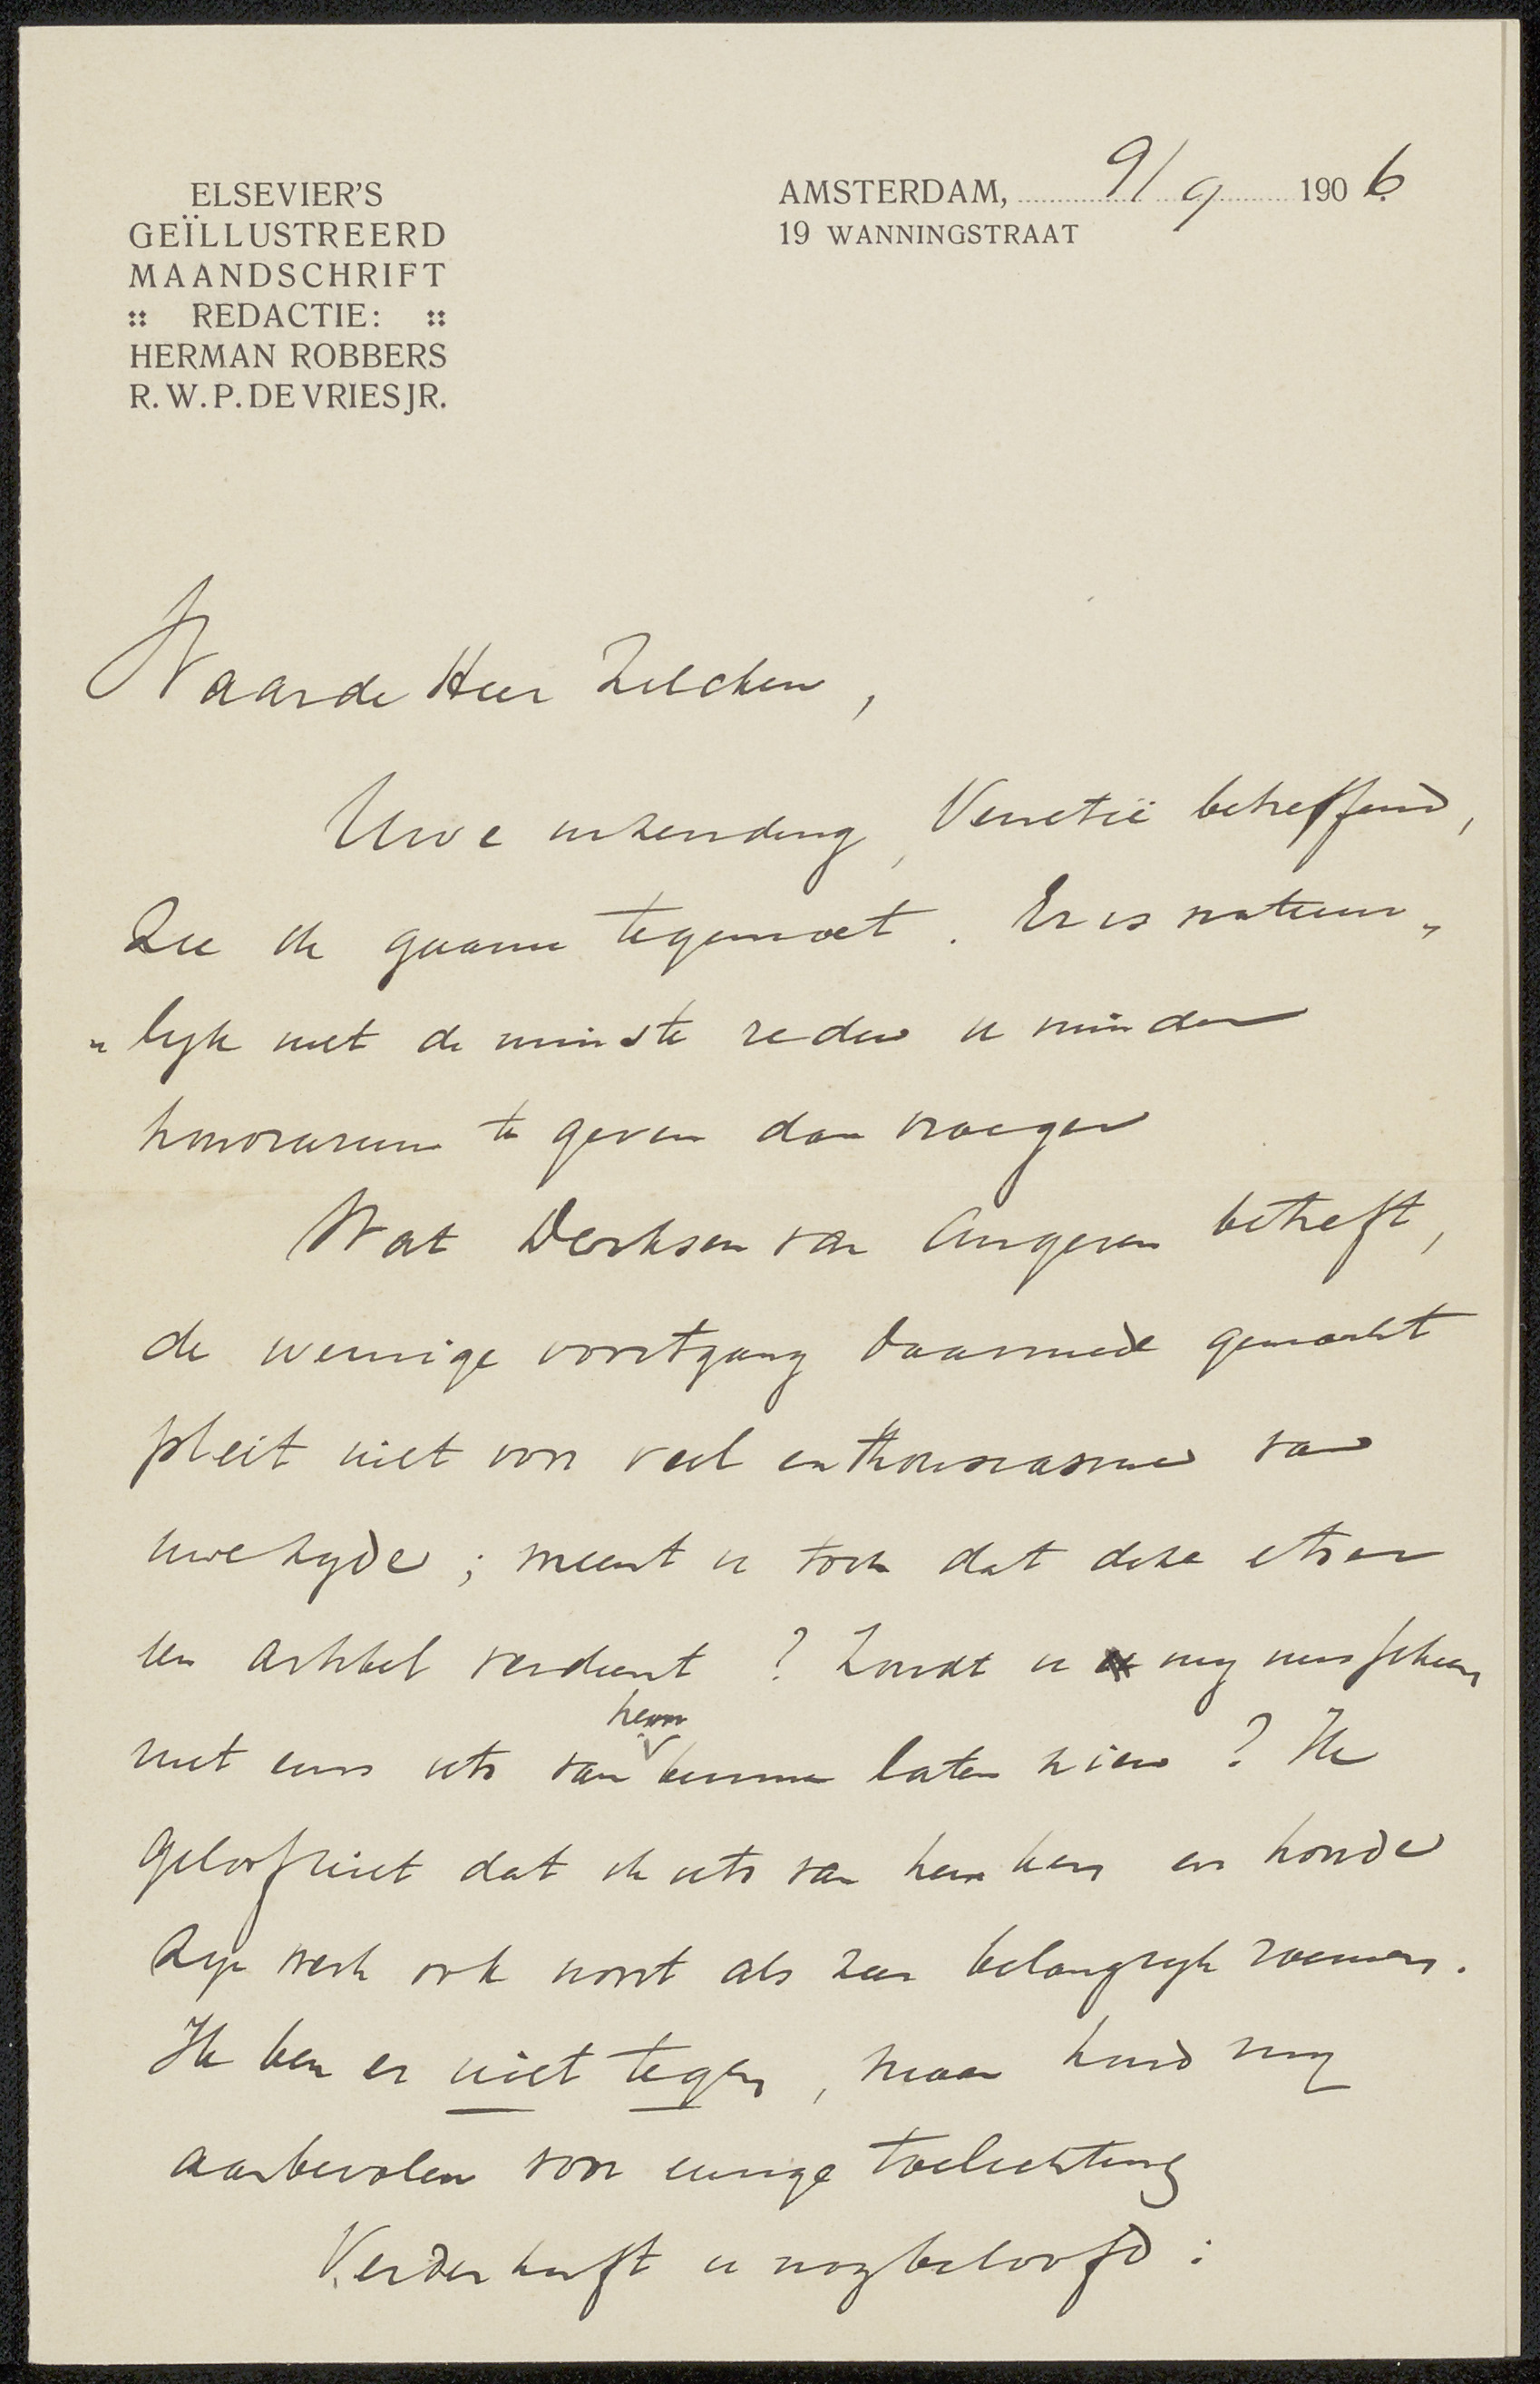 ELSEVIER'S
GEÏLLUSTREERD
MAANDSCHRIFT
:: REDACTIE: ::
HERMAN ROBBERS
R. W. P. DE VRIES JR.
AMSTERDAM, 9/9 1906
19 WANNINGSTRAAT
Waarde Heer Zilcken,
Uwe inzending, Venetië betreffend,
zie ik gaarne tegemoet. Er is natuur„
„lyk niet de minste reden u minder
honorarium te geven dan vroeger
Wat Derksen van Angeren betreft,
de weinige voortgang daarmede gemaakt
pleit niet voor veel enthousiasme van
uwe zyde; meent u toch dat deze etser
een artikel verdient? Zoudt u my misschien
niet eens iets van hem kunnen laten zien? Ik
geloof niet dat ik iets van hem ken en hoorde
zyn werk ook nooit als zeer belangryk roemen.
Ik ben er niet tegen, maar houd my
aanbevolen voor eenige toelichting
Verder heeft u nog beloofd: